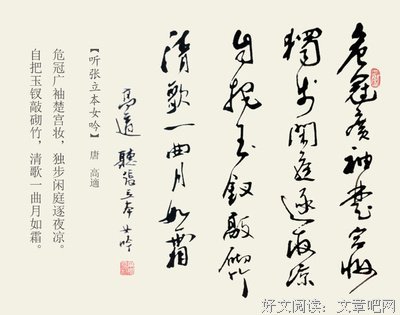 危冠廣袖楚宮妝
獨步閑庭逐夜涼
自把玉釵敲砌竹
清歌一曲月如霜
高適 聽張立本女吟
【听张立本女吟】 唐 高適
危冠广袖楚宫妆，独步闲庭逐夜凉。
自把玉钗敲砌竹，清歌一曲月如霜。
好文阅读：文章吧网